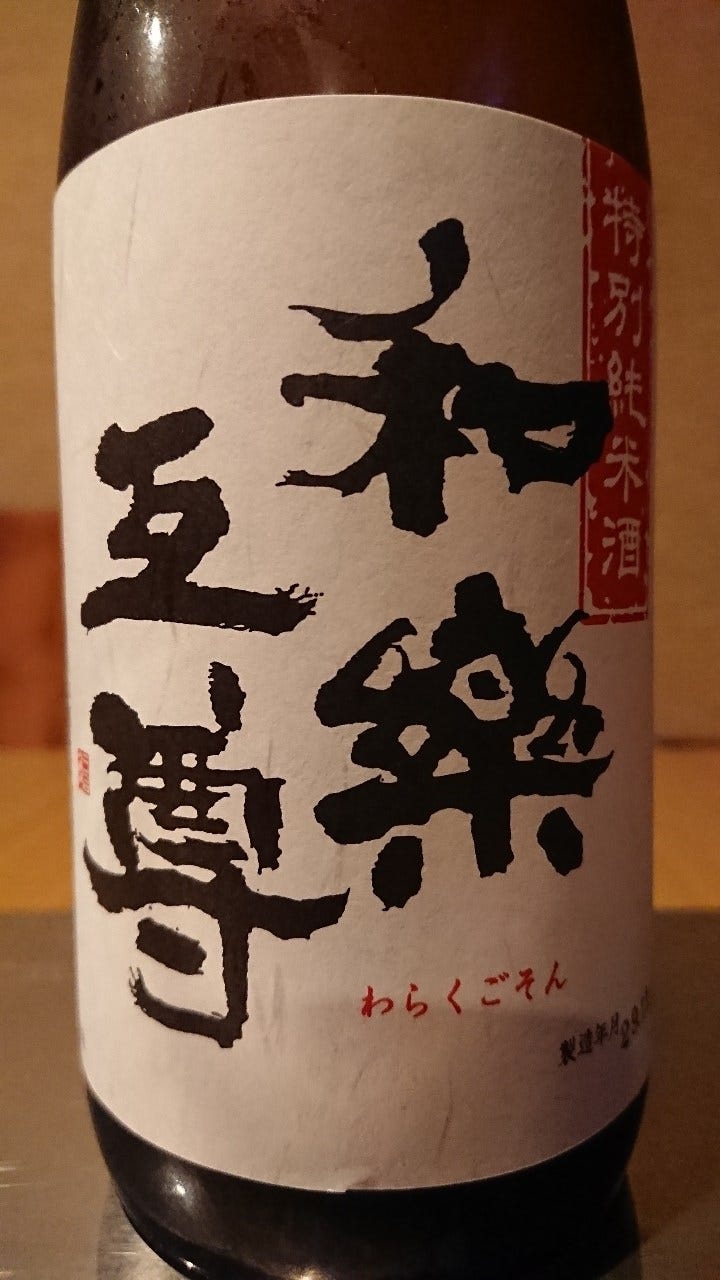 特別純米酒
和樂
互尊
わらくごそん
製造年月29.